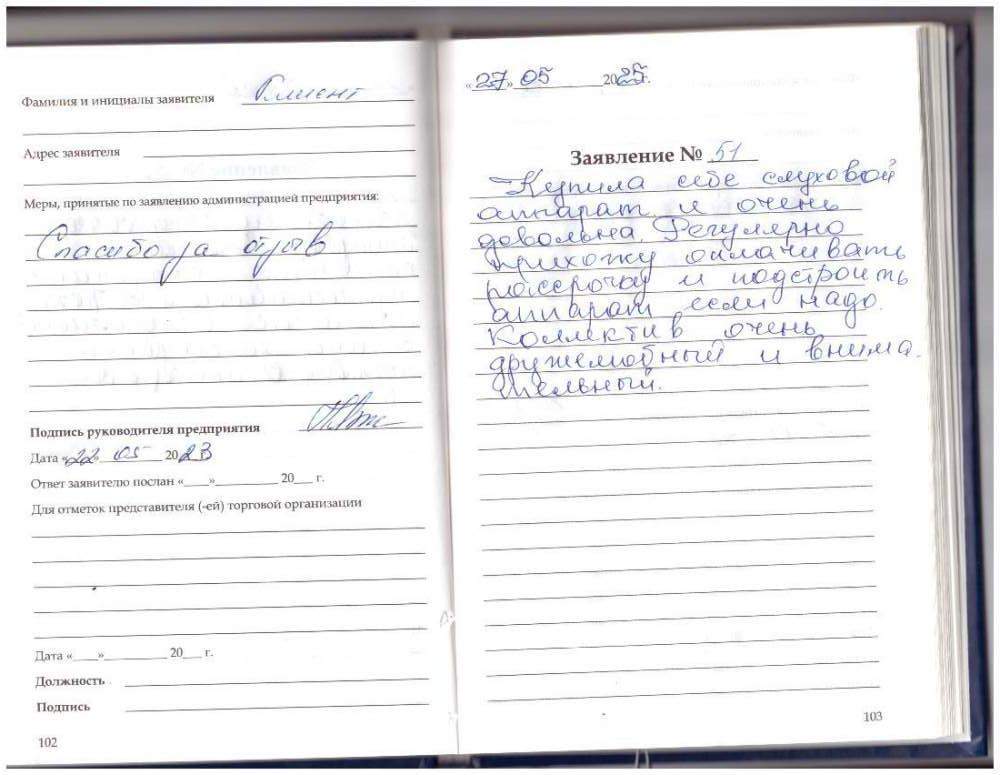 Фамилия и инициалы заявителя Клиент
Адрес заявителя
Меры, принятые по заявлению администрацией предприятия:
Спасибо за отзыв
Подпись руководителя предприятия
Дата «22» 05 2023
Ответ заявителю послан «___»__________ 20___ г.
Для отметок представителя (-ей) торговой организации
Дата «____»__________ 20___ г.
Должность
Подпись
102
«27» 05 2025г.
Заявление № 51
Купила себе слуховой
аппарат и очень
довольна. Регулярно
прихожу оплачивать
рассрочку и подстроить
аппарат если надо.
Коллектив очень
дружелюбный и внима
тельный.
103